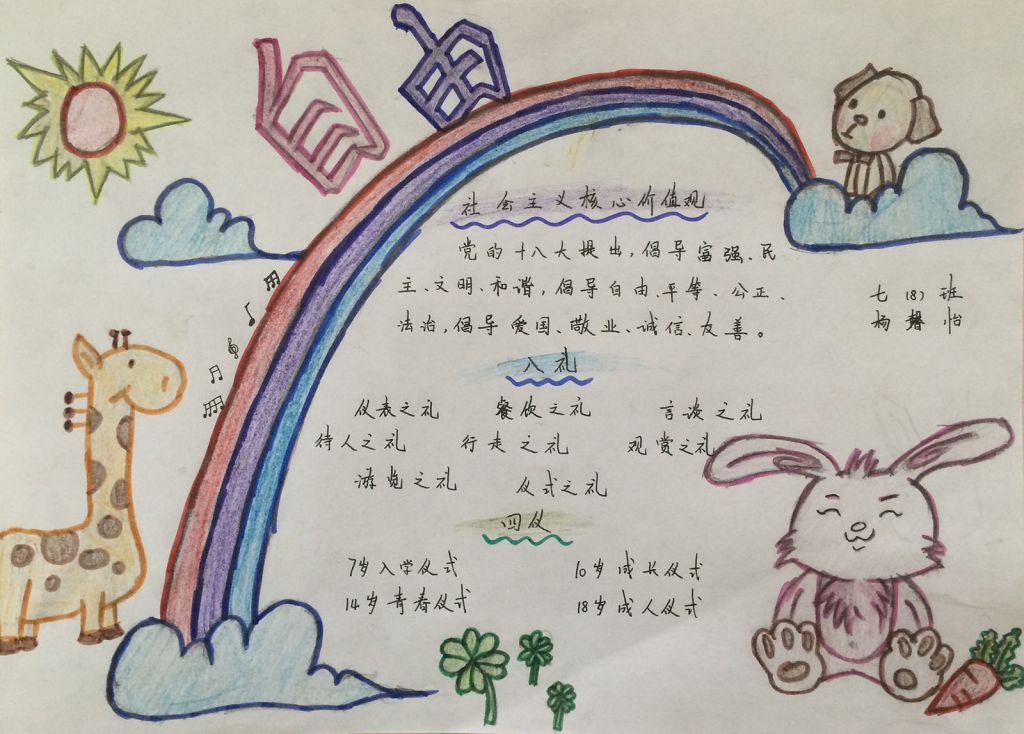 社会主义核心价值观
党的十八大提出，倡导富强、民
主、文明、和谐，倡导自由、平等、公正、
法治，倡导爱国、敬业、诚信、友善。
七（8）班
杨馨怡
八礼
仪表之礼 餐饮之礼 言谈之礼
待人之礼 行走之礼 观赏之礼
游览之礼 仪式之礼
四仪
7岁入学仪式 10岁成长仪式
14岁青春仪式 18岁成人仪式